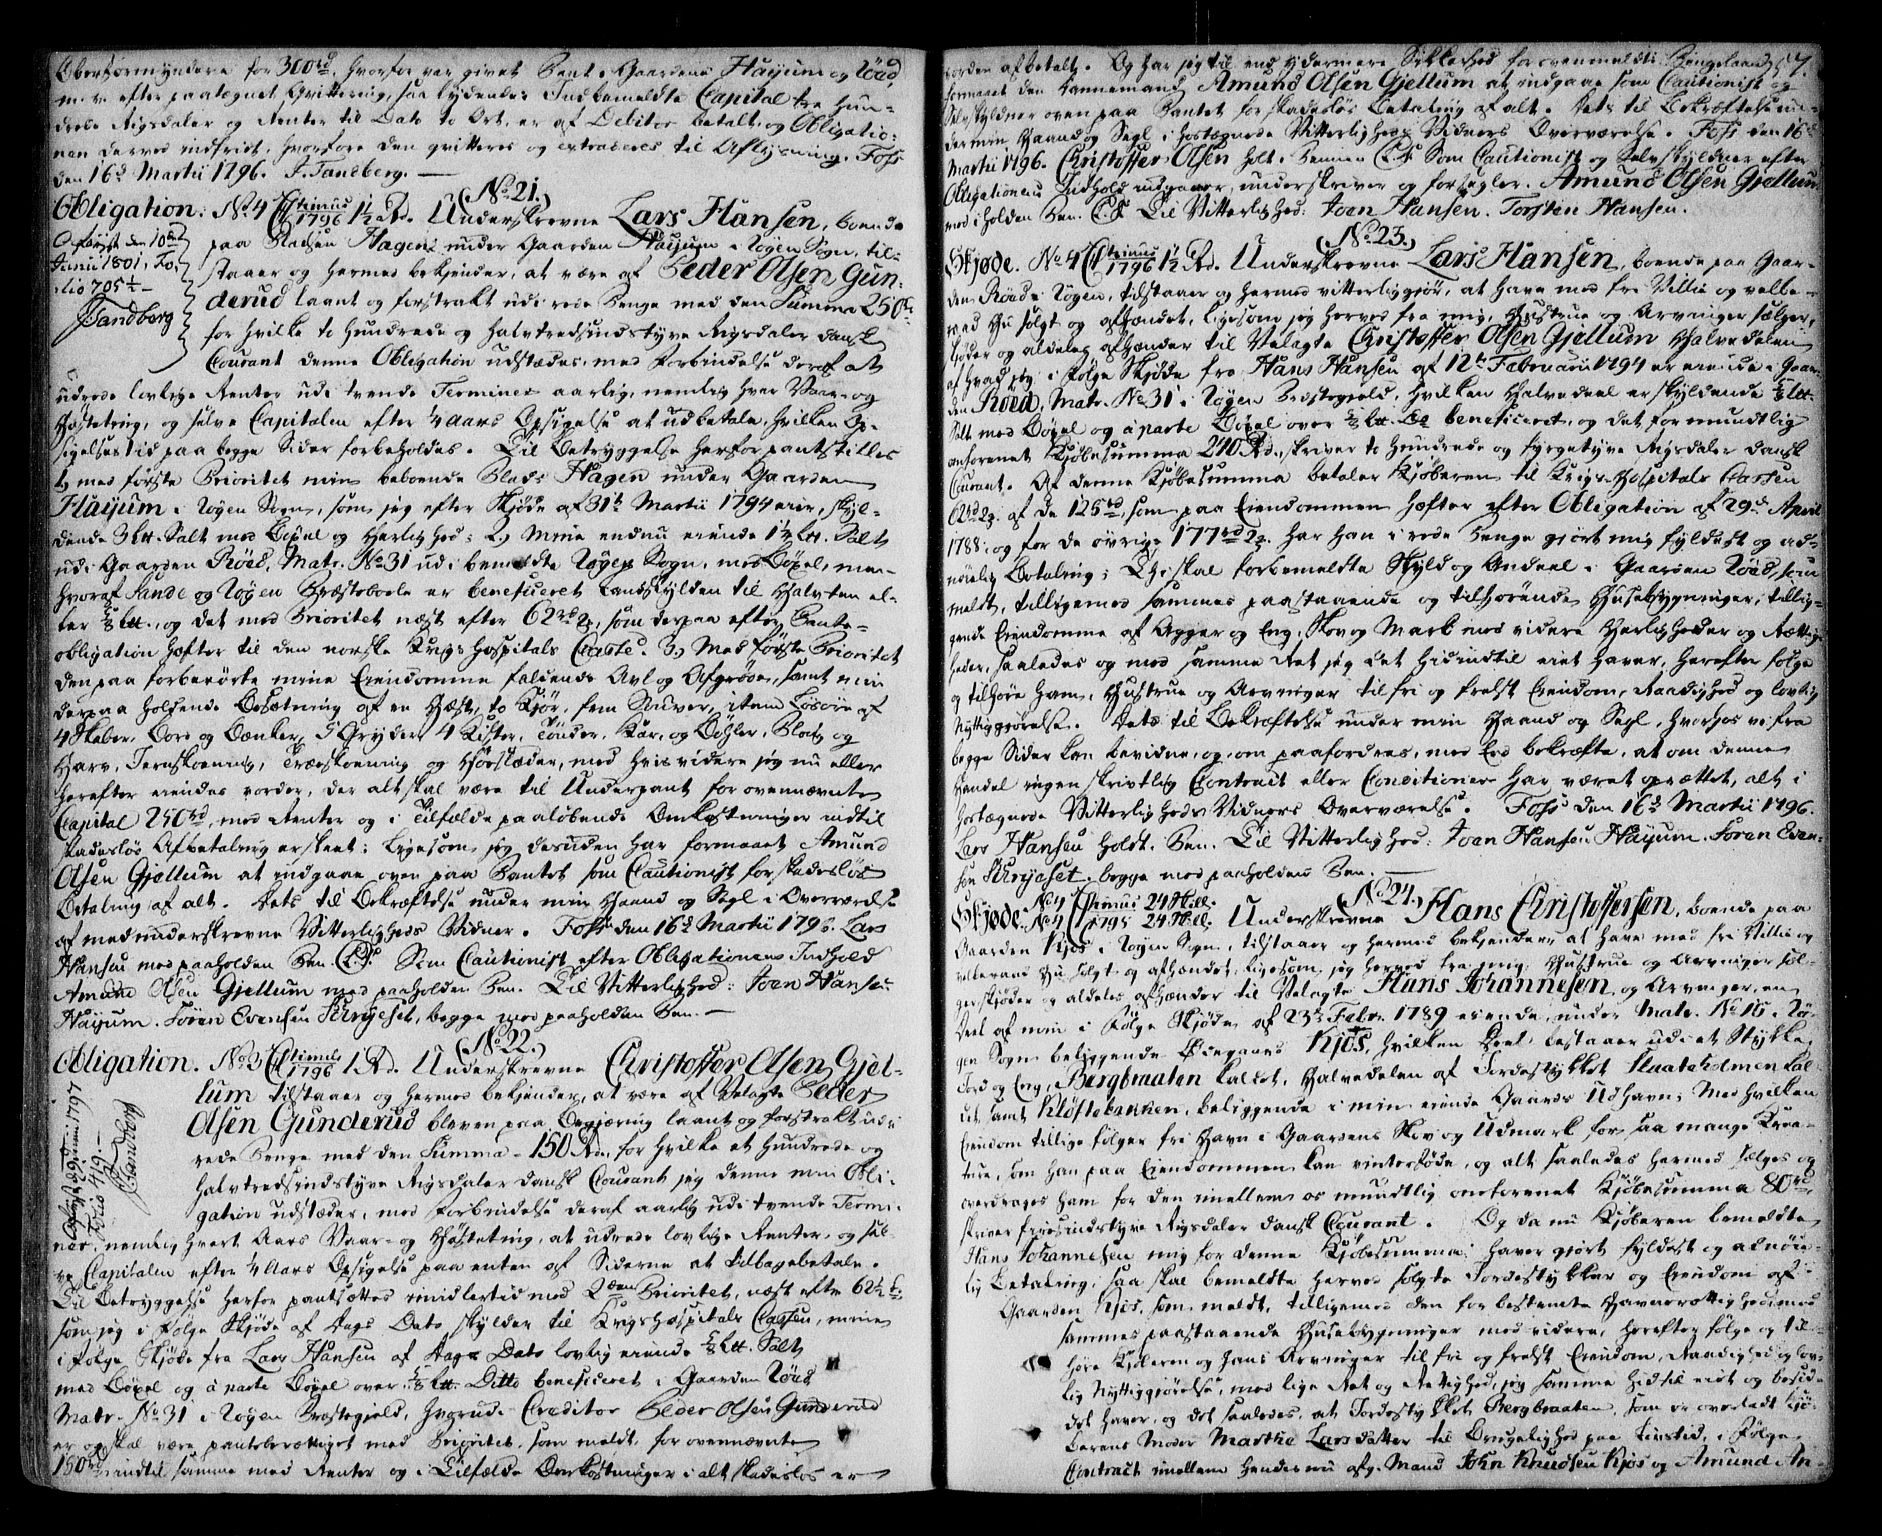 Oberformyndere for 300rd, hvorfor var givet Pant i Gaardene Haÿum og Röed
m. v. efter paategnet Qvittering, saa lydende: Indbemeldte Capital tre hun-
drede Rigsdaler og Renter til Dato to Ort, er af Debitor betalt og Obligatio-
nen derved indfriet, hvorfore den qvitteres og extraderes til Aflysning. Foss
den 16d Martii 1796. J. Sandberg. —
(No. 21.)
Obligation: No. 4 Ctrimus 1796 1½ Rd. Underskrevne Lars Hansen, boende
paa Pladsen Hagen under Gaarden Haÿum i Röyen Sogn, til-
staaer og hermed bekjender, at være af Peder Olsen Gun-
derud laant og forstrakt udi rede Penge med den Summa 250rd
for hvilke to hundrede og halvtredsindstyve Rigsdaler dansk
Courant denne Obligation udstædes, med Forbindelse deraf at
Aflæst den 10de
Junii 1801, Fo-
lio 705½ —
JSandberg
udrede lovlige Renter udi tvende Terminer aarlig, nemlig hver Vaar- og
Høsteting, og selve Capitalen efter ½ Aars Opsigelse at udbetale, hvilken Op-
sigelses tid paa begge Sider forbeholdes. Til Betryggelse herfor pantstilles
1) med første Prioritet min beboende Plads Hagen under Gaarden
Haÿum i Röyen Sogn, som jeg efter Skjøde af 31te Martii 1794 eier, skyl-
dende 3 ℔. Salt med Bøxel og Herlighed; 2) Mine endnu eiende 1½ ℔. Salt
udi Gaarden Röed, Matr. No 31 udi bemeldte Röyen Sogn, med Bøxel, men-
hvoraf Sande og Röyen Præstebole er beneficeret Landskylden til Halvten el-
ler ⅝ ℔., og det med Prioritet næst efter 62rd 2, som derpaa efter Pante-
obligation hæfter til den norske Krigs Hospitals Casse. 3) Med første Prioritet
den paa forberørte mine Eiendomme faldende Avl og Afgrøde, samt min
derpaa holdende Besætning af en Hæst, to Kjør, fem Souver, item Løsøre af
4 Skaber, Bord og Bænker, 5 Gryder, 4 Kister, Tönder, Kar, og Bøhler, Ploug og
Harv, Jernskoening, Træeskoening og Hörstæder, med hvis videre jeg nu eller
herefter eiendes vorder, der alt skal være til Underpant for ovennævnte
Capital 250rd, med Renter og i Tilfælde paaløbende Omkostninger indtil
skadesløs Afbetaling er skeet; ligesom jeg desuden har formaaet Amund
Olsen Gjellum at indgaae oven paa Pantet som Cautionist for skadesløs
Betaling af alt. Dets til Bekræftelse under min Haand og Segl i Overværelse
af medunderskrevne Vitterligheds Vidner. Foss den 16d Martii 1796. Lars
Hansen med paaholden Pen. L.S. Som Cautionist efter Obligationens Indhold
Amund Olsen Gjellum med paaholden Pen. Til Vitterlighed: Joen Hansen
Haÿum. Sören Evensen Kinjeset, begge med paaholden Pen. —
(No. 22.)
Obligation. No. 3 Ctrimus 1796 1 Rd. Underskrevne Christoffer Olsen Gjel-
lum tilstaaer og hermed bekjender, at være af Velagte Peder
Olsen Gunderud bleven paa Begjæring laant og forstrakt udi
rede Penge med den Summa 150 Rd., for hvilke et hundrede og
halvtredsindstyve Rigsdaler dansk Courant jeg denne min Obli-
gation udstæder, med Forbindelse deraf aarlig udi tvende Termi-
Aflyst 29 Junii 1797
Folio 419. —
JSandberg
ner, nemlig hvert Aars Vaar- og Høstetting, at udrede lovlige Renter, og sel-
ve Capitalen efter ½ Aars Opsigelse paa enten af Siderne at tilbagebetale.
Til Betryggelse herfor pantsættes imidlertid med 2den Prioritet, næst efter 62½ rd
som jeg i Følge Skjøde af Dags Dato skylder til Krigs Hospitals Cassen, mine
i Følge Skjøde fra Lars Hansen af Dags Dato lovlig eiende ⅝ ℔. Salt
med Bøxel og á parte Bøxel over ⅝ ℔. Ditto beneficeret i Gaarden Röed
Matr. No 31 i Röyen Præstegield, hvorudi Creditor Peder Olsen Gunderud
er og skal være pantberettiget med Prioritet, som meldt, for ovennævnte
150rd indtil samme med Renter og i Tilfælde Omkostninger i alt skadesløs er
57.
vorden afbetalt. Og har jeg til end ydermere Sikkerhed for ovenmeldte Penge Laan
formaaet den Dannemand Amund Olsen Gjellum at indgaae som Cautionist og
Selvskyldner oven paa Pantet for skadesløs Betaling af alt. Dets til Bekræftelse un-
der min Haand og Segl i hostegnede Vitterligheds Vidners Overværelse. Foss den 16d
Martii 1796. Christoffer Olsen holdt i Pennen L.S. Som Cautionist og Selvskyldner efter
Obligationens Indhold indgaaer, underskriver og forsegler. Amund Olsen Gjellum
med iholden Pen. L.S. Til Vitterlighed: Joen Hansen. Torsten Hansen.
(No. 23.)
Skjøde. No. 4 Ctrimus 1796 1½ Rd. Underskrevne Lars Hansen, boende paa Gaar-
den Röed i Röyen, tilstaaer og hermed vitterliggjør, at have med frie Villie og velbe-
raad Hu solgt og afhændet, ligesom jeg herved fra mig, Hustrue og Arvinger sælger,
skjøder og aldeles afhænder til Velagte Christoffer Olsen Gjellum Halvedelen
af hvad jeg i Følge Skjøde fra Hans Hansen af 12te Februarii 1794 er eiende i Gaar-
den Röed, Matr. No 31 i Röyen Præstegield, hvilken Halvedeel er skyldende ⅝ ℔.
Salt med Bøxel og á parte Bøxel over ⅝ ℔. Do beneficeret, og det for mundtlig
omforenet Kjøbesumma 240 Rd., skriver to hundrede og fyrgetyve Rigsdaler dansk
Courant. Af denne Kjøbesumma betaler Kjøberen til Krigs-Hospitals Cassen
62rd 2. af de 125rd, som paa Eiendommen hæfter efter Obligation af 29d April
1788, og for de øvrige 177rd 2. har han i rede Penge gjort mig fyldest og ad-
nöielig Betaling; Thi skal forbemeldte Skyld og Andeel i Gaarden Röed, som
meldt, tilligemed sammes paastaaende og tilhørende Husebygninger, tillig-
gende Eiendomme af Agger og Eng, Skov og Mark med videre Herligheder og Rættig-
heder, saaledes og med samme Ret jeg det hidindtil eiet haver, herefter følge
og tilhøre ham, Hustrue og Arvinger til frie og frelst Eiendom, Raadighed og lovlig
Nyttiggjørelse. Dets til Bekræftelse under min Haand og Segl, hvorhos vi fra
begge Sider kan bevidne, og, om paafordres, med Eed bekræfte, at om denne
Handel ingen skriftlig Contract eller Conditioner har været oprættet, alt i
hostegnede Vitterligheds Vidners Overværelse. Foss den 16d Martii 1796.
Lars Hansen holdt i Pen. Til Vitterlighed: Joen Hansen Haÿum. Sören Even-
sen Kinjeset, begge med paaholden Pen. —
(No. 24.)
Skjøde. No 4 Ctrimus 1796 24 Skill. No 4 1795 24 Skill. Underskrevne Hans Christoffersen, boende paa
Gaarden Kjos i Röyen Sogn, tilstaaer og hermed bekjender, at have med frie Villie og
velberaad Hu solgt og afhændet, ligesom jeg herved fra mig, Hustrue og Arvinger sæl-
ger, skjøder og aldeles afhænder til Velagte Hans Johannesen, og Arvinger, en
Deel af min i Følge Skjøde af 23de Febr. 1789 eiende, under Matr. No 16 i Rö-
yen Sogn beliggende Ødegaard Kjos, hvilken Deel bestaaer udi et Stykke
Jord og Eng, Bergbraaten kaldet, Halvedelen af Jordestykket Skaateholmen kal-
det, samt Kløftebakken, beliggende i min eiende Gaards Udhavn; Med hvilken
Eiendom tillige følger frie Havn i Gaardens Skov og Udmark for saa mange Krea-
ture, som han paa Eiendommen kan vinterføde, og alt saaledes hermed sælges og
overdrages ham for den imellem os mundtlig omforenet Kjøbesumma 80rd,
skriver firesindstyve Rigsdaler dansk Courant. Og da nu Kjøberen bemeldte
Hans Johannesen mig for denne Kjøbesumma haver gjort fyldest og adnöie-
lig Betaling; saa skal bemeldte herved solgte Jordestykker og Eiendom af
Gaarden Kjos, som meldt, tilligemed den forbestemte Havnerettighed med
sammes paastaaende Husebygninger med videre, herefter følge og til-
høre Kjøberen og hans Arvinger til frie og frelst Eiendom, Raadighed og lov-
lig Nyttiggjørelse, med lige Ret og Rettighed, jeg samme hidtil eiet og besid-
det haver, og det saaledes, at Jordestykket Bergbraaten, som er overladt Kjø-
berens Moder Marthe Larsdatter til Brugelighed paa Livstid, i Følge
Contract imellem hendes nu afg. Mand John Knudsen Kjos og Amund An-